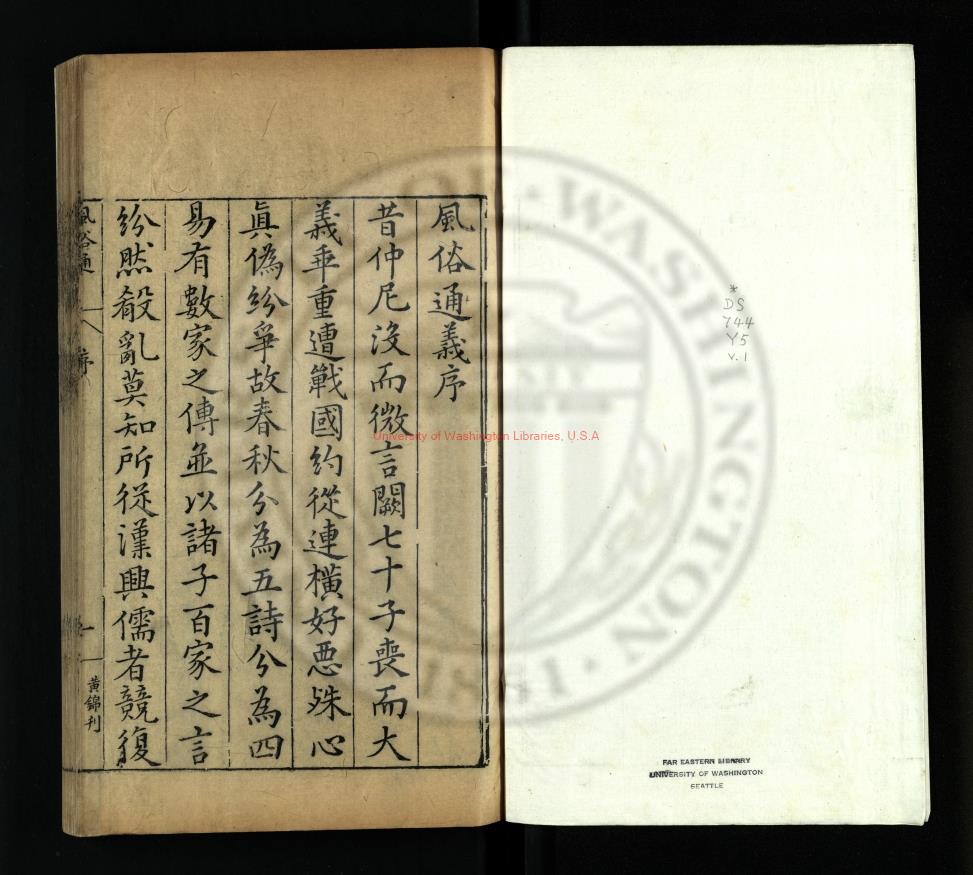 風俗通義序
昔仲尼没而微言闕七十子喪而大
義乖重遭戰國約從連橫好惡殊心
眞偽紛爭故春秋分為五詩分為四
易有數家之傳並以諸子百家之言
紛然殽亂莫知所從漢興儒者競復
風俗通
序
一
黃錦刋
*
DS
744
Y5
v.1
FAR EASTERN LIBRARY
UNIVERSITY OF WASHINGTON
SEATTLE
University of Washington Libraries, U.S.A
WASHINGTON
1861